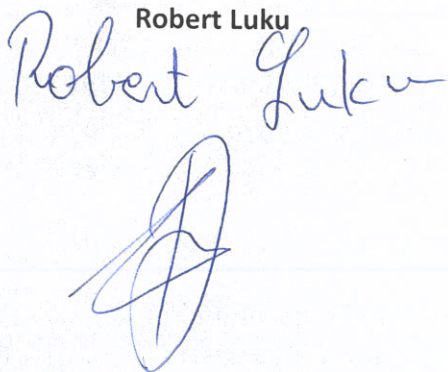 Robert Luku
Robert Luku